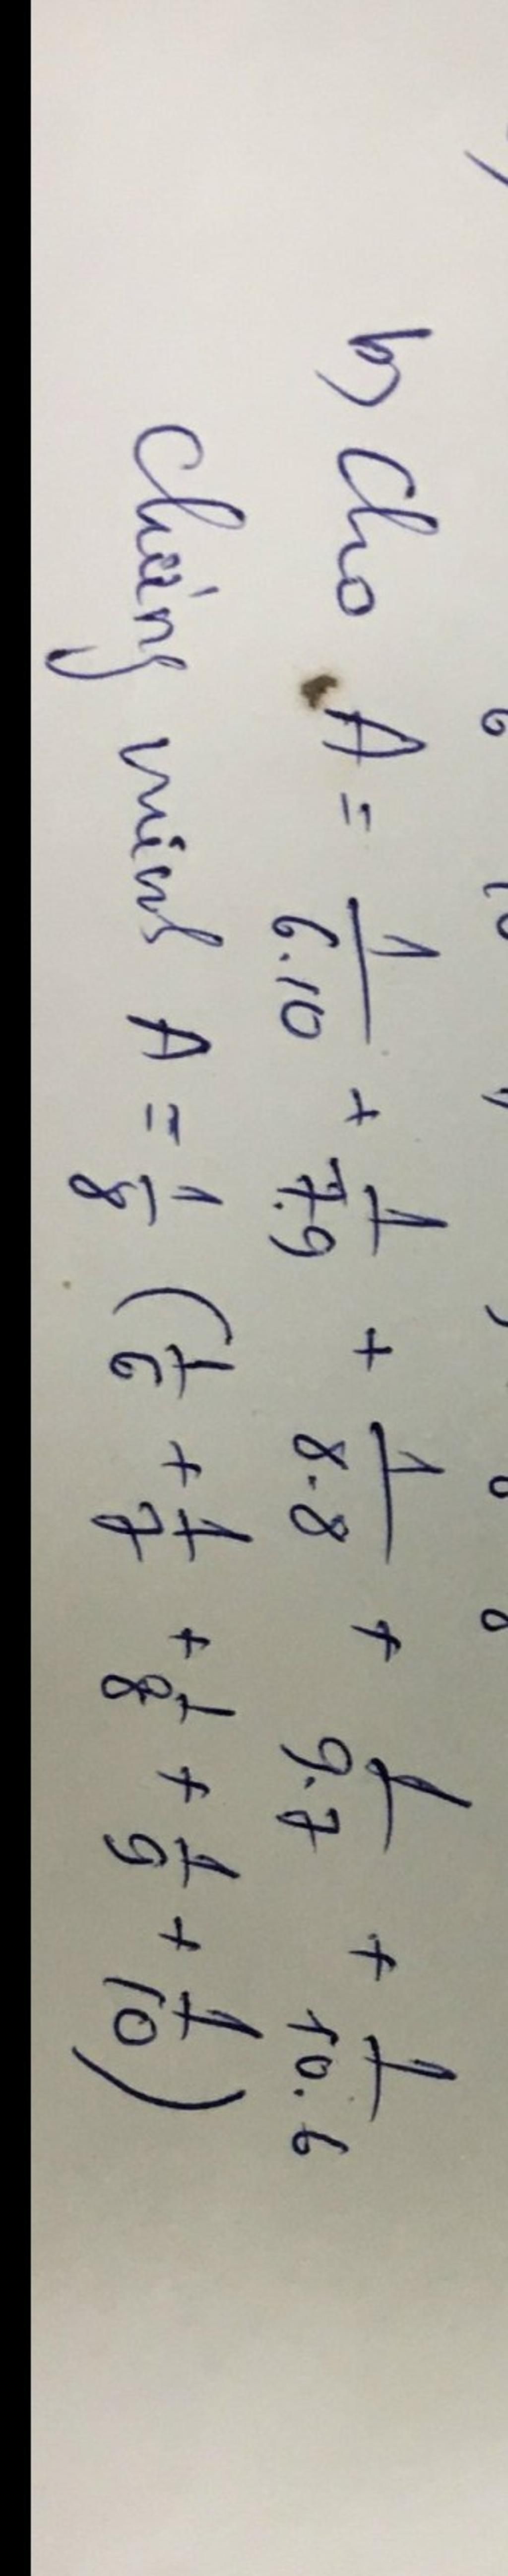 b) Cho A = 1/6.10 + 1/7.9 + 1/8.8 + 1/9.7 + 1/10.6
Chứng minh A = 1/8 (1/6 + 1/7 + 1/8 + 1/9 + 1/10)